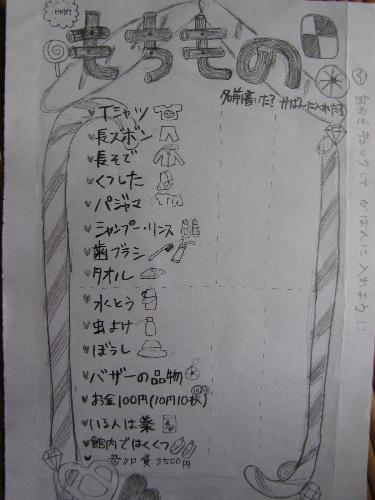 HAPPY
もちもの
名前書いた? かばんに入れた?
Tシャツ
長ズボン
長そで
くつした
パジャマ
シャンプー・リンス
歯ブラシ
タオル
水くとう
虫よけ
ぼうし
バザーの品物
お金100円(10円10枚)
いる人は薬
館内ではくくつ
参加費3500円
自分でチェックして かばんに入れよう!!